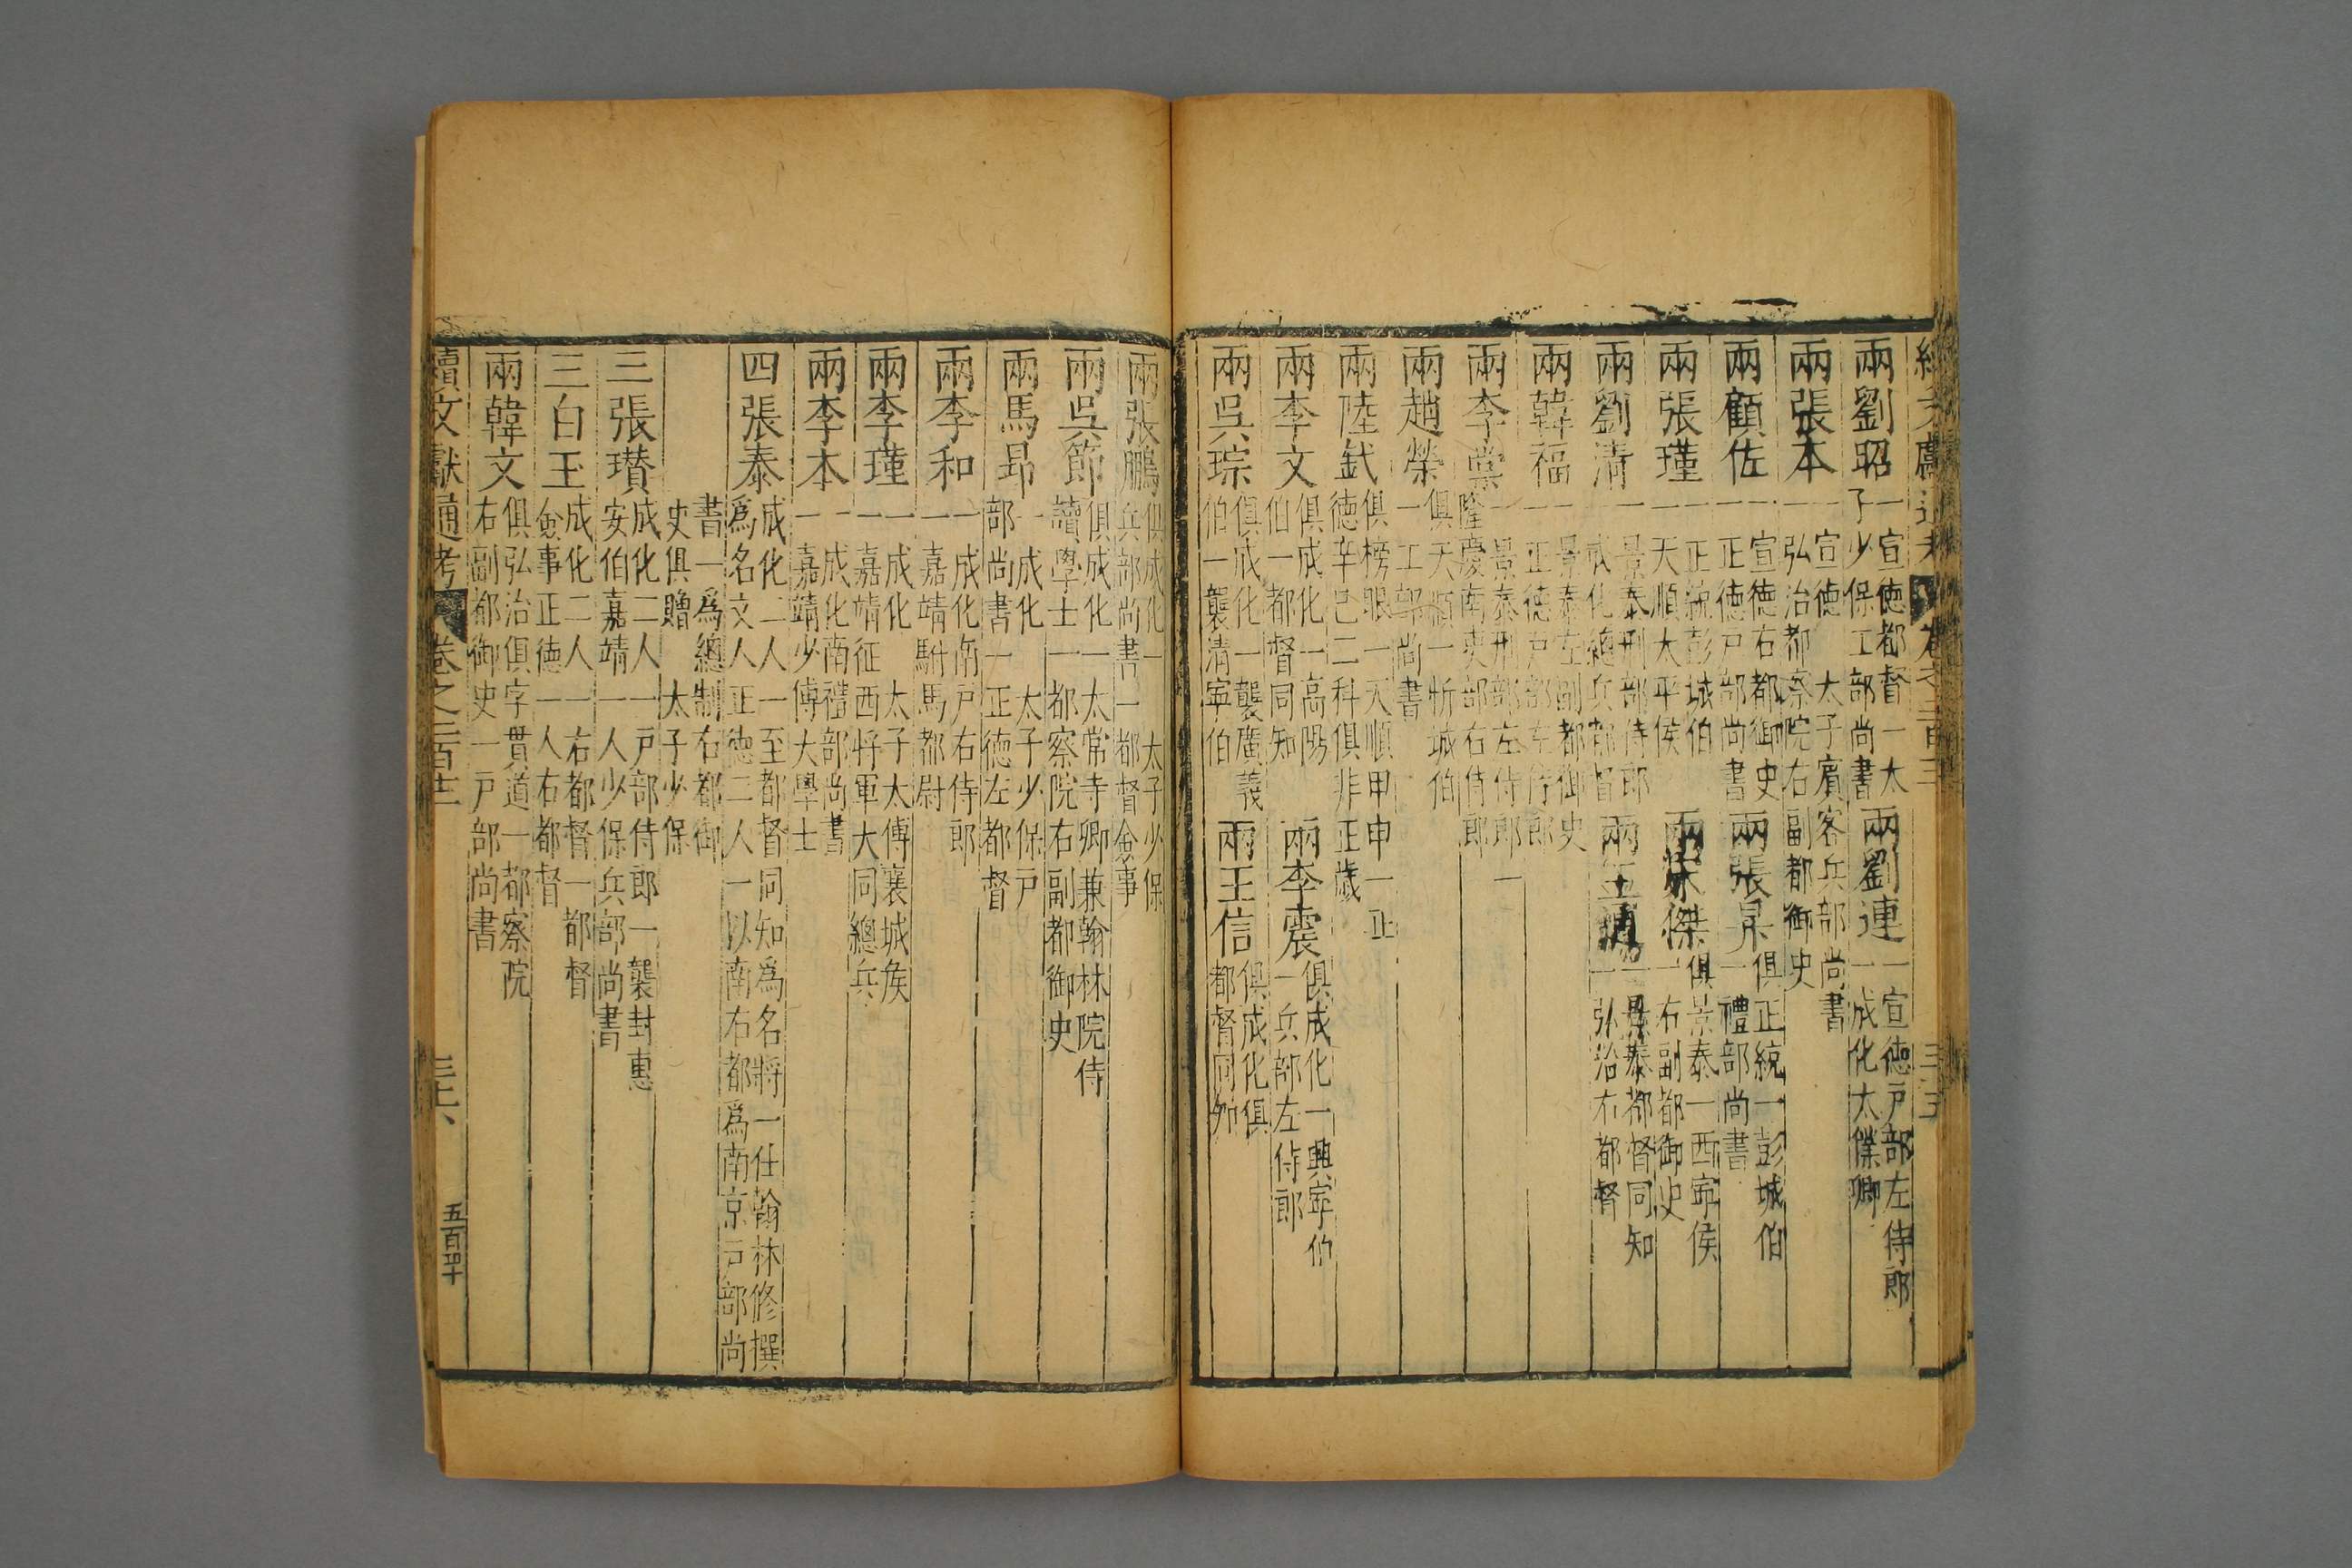 續文獻通考 卷之二百三 三十五
兩劉昭 一宣德都督一太子少保工部尚書 兩劉連 一宣德戶部左侍郎一成化太僕卿
兩張本 一宣德 太子賓客兵部尚書一弘治都察院右副都御史
兩顧佐 一宣德右都御史一正德戶部尚書 兩張昇 俱正統一彭城伯一禮部尚書
兩張瑾 一正統彭城伯一天順太平侯 兩宋傑 俱景泰一西寧侯一右副都御史
兩劉清 一景泰刑部侍郎一成化總兵都督 兩王 一景泰都督同知一弘治右都督
兩韓福 一景泰左副都御史一正德戶部左侍郎
兩李棠 一景泰刑部左侍郎一隆慶南吏部右侍郎
兩趙榮 俱天順一忻城伯一工部尚書
兩陸釴 俱榜眼一天順甲申一正德辛巳二科俱非正歲
兩李文 俱成化一高陽伯一都督同知 兩李震 俱成化一興寧伯一兵部左侍郎
兩吳琮 俱成化一襲廣義伯一襲清寧伯 兩王信 俱成化俱都督同知
兩張鵬 俱成化一 太子少保兵部尚書一都督僉事
兩吳節 俱成化一太常寺卿兼翰林院侍讀學士一都察院右副都御史
兩馬昂 一成化 太子少保戶部尚書一正德左都督
兩李和 一成化南戶右侍郎一嘉靖駙馬都尉
兩李瑾 一成化 太子太傅襄城侯一嘉靖征西將軍大同總兵
兩李本 一成化南禮部尚書一嘉靖少傅大學士
四張泰 成化二人一至都督同知為名將一仕翰林修撰為名文人正德二人一以南右都為南京戶部尚
書一為總制右都御史俱贈 太子少保
三張瓚 成化二人一戶部侍郎一襲封惠安伯嘉靖一人少保兵部尚書
三白玉 成化二人一右都督一都督僉事正德一人右都督
兩韓文 俱弘治俱字貫道一都察院右副都御史一戶部尚書
續文獻通考 卷之二百三 三十六 五百四十